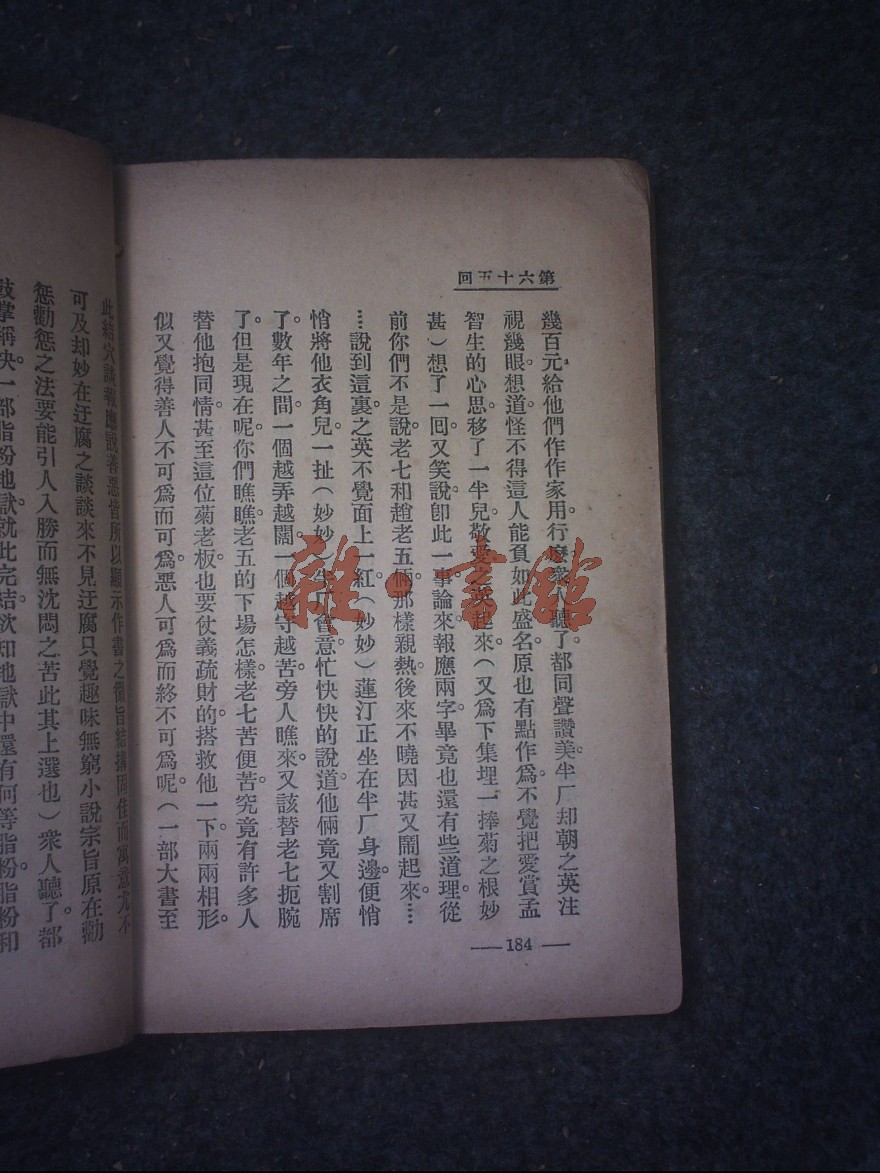 第六十五回
幾百元給他們作作家用。行麽衆人聽了。都同聲讚美。半厂却朝之英注
視幾眼。想道。怪不得這人能負如此盛名。原也有點作爲。不覺把愛賞孟
智生的心思。移了一半兒。敬愛之英起來。（又爲下集埋一捧菊之根妙
甚）想了一回。又笑說。卽此一事論來。報應兩字。畢竟也還有些道理。從
前你們不是說。老七和趙老五倆。那樣親熱。後來不曉因甚又鬧起來。…
…說到這裏。之英不覺面上一紅（妙妙）蓮汀正坐在半厂身邊。便悄
悄將他衣角兒一扯（妙妙）半厂會意。忙快快的說道。他倆竟又割席
了。數年之間。一個越弄越闊。一個越守越苦。旁人瞧來。又該替老七扼腕
了。但是現在呢。你們瞧瞧老五的下場怎樣。老七苦便苦。究竟有許多人
替他抱同情。甚至這位菊老板。也要仗義疏財的。搭救他一下。兩兩相形。
似又覺得善人不可爲而可爲。惡人可爲而終不可爲呢。（一部大書至
184
此結穴談報應說善惡皆所以顯示作書之 旨結構固佳而寓意尤不
可及却妙在迂腐之談談來不見迂腐只覺趣味無窮小說宗旨原在勸
懲勸懲之法要能引人入勝而無沈悶之苦此其上選也）衆人聽了。都
鼓掌稱快。一部脂粉地獄。就此完結。欲知地獄中還有何等脂粉。脂粉和
雜·書館